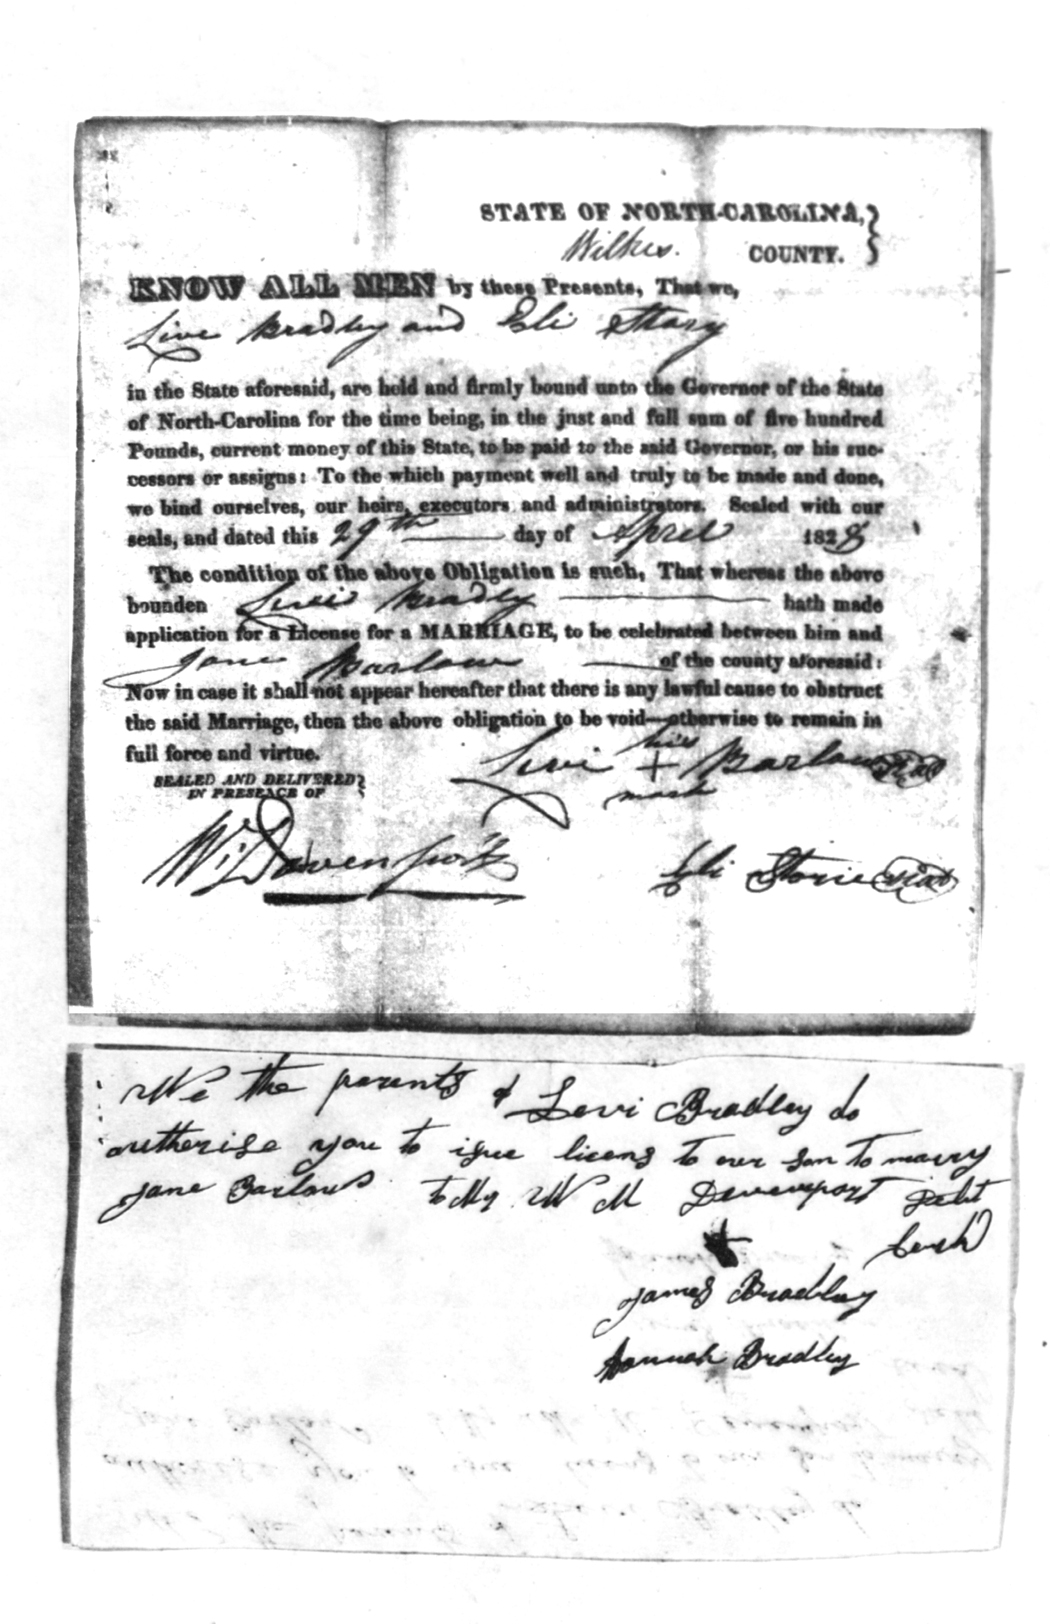 STATE OF NORTH-CAROLINA,
Wilkes. COUNTY.
KNOW ALL MEN by these Presents, That we,
Live Bradley and Eli Story
in the State aforesaid, are held and firmly bound unto the Governor of the State
of North-Carolina for the time being, in the just and full sum of five hundred
Pounds, current money of this State, to be paid to the said Governor, or his suc-
cessors or assigns: To the which payment well and truly to be made and done,
we bind ourselves, our heirs, executors and administrators. Sealed with our
seals, and dated this 29th day of April 1828
The condition of the above Obligation is such, That whereas the above
bounden Levi Bradley hath made
application for a License for a MARRIAGE, to be celebrated between him and
Jane Barlow of the county aforesaid:
Now in case it shall not appear hereafter that there is any lawful cause to obstruct
the said Marriage, then the above obligation to be void—otherwise to remain in
full force and virtue.
SEALED AND DELIVERED
IN PRESENCE OF
his
Levi + Barlow seal
mark
W: Davenport
Eli Storie seal
We the parents of Levi Bradley do
autherise you to isue licens to our son to marry
Jane Barlow to My W M Devenport
James Bradley
Hannah Bradley